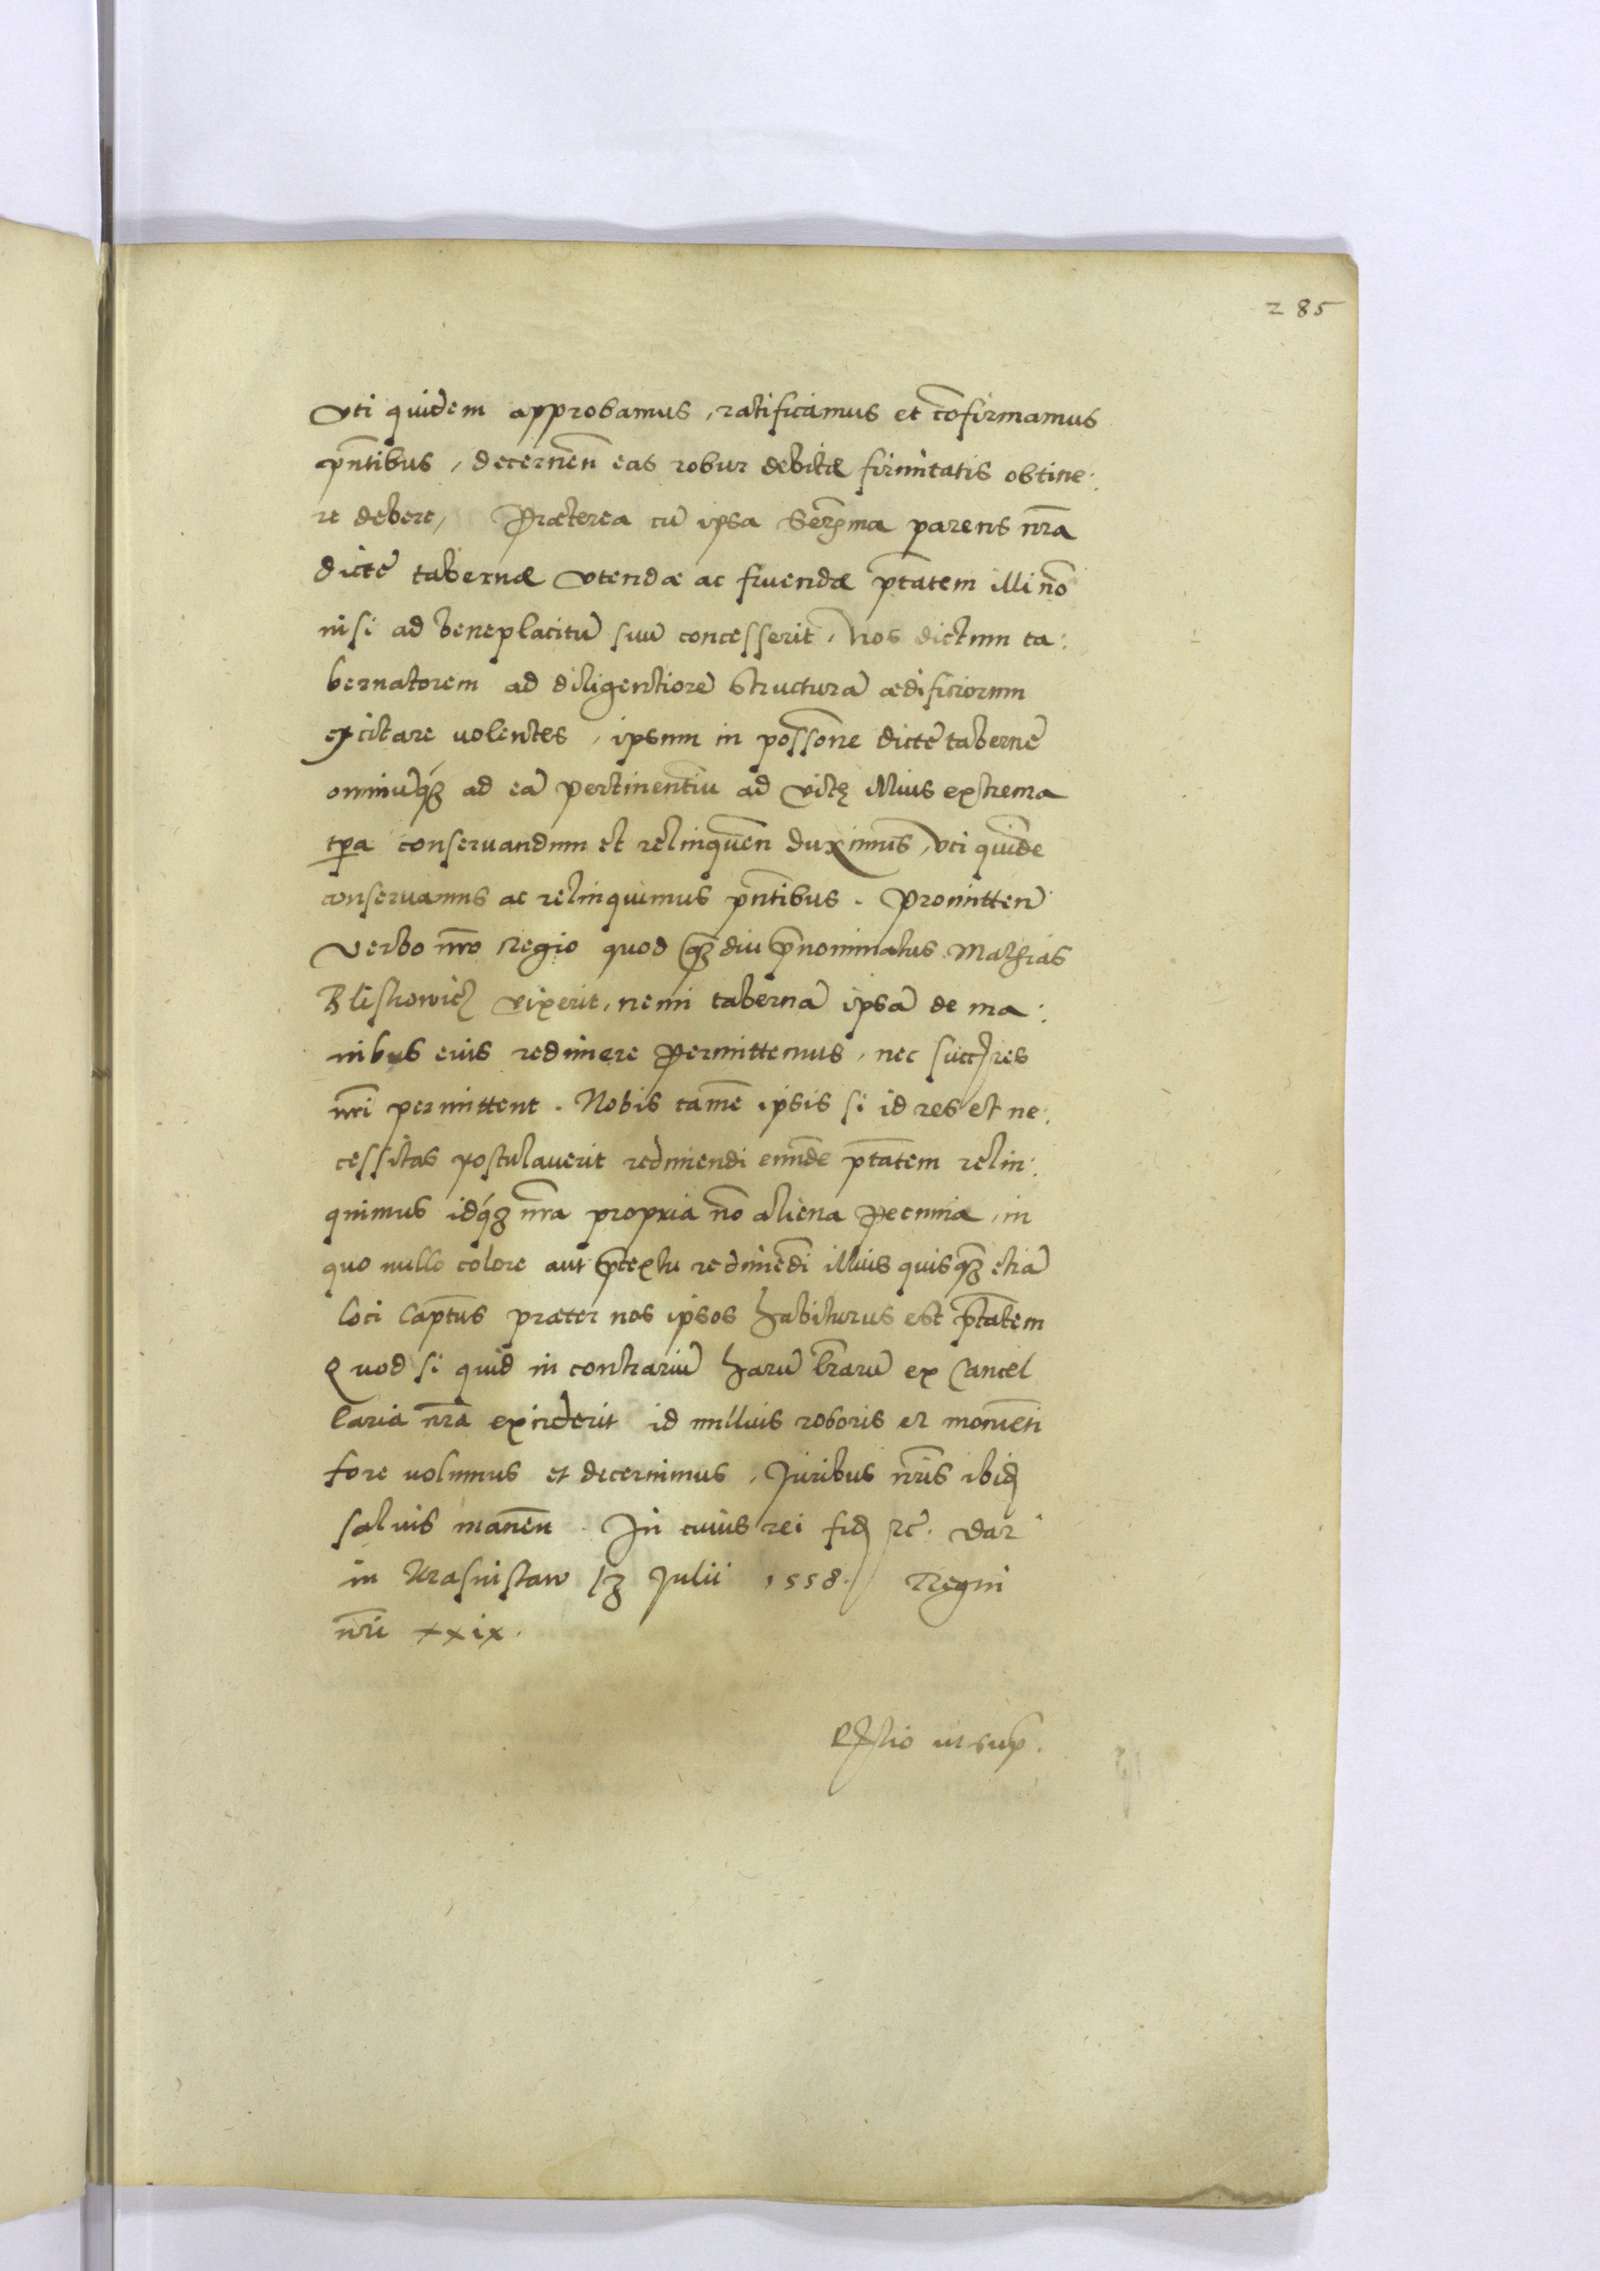 285
Vti quidem approbamus, ratificamus et cōfirmamus
p̄ntibus, decernen̄ eas robur debitæ firmitatis obtine:
re debere, Præterea cū ipsa Serma parens nr̄a
dictę tabernæ vtendæ ac fruendæ ptātem illi nō
nisi ad beneplacitū suū concesserit, Nos dictum ta:
bernatorem ad diligentiorē structurā ædificiorum
excitare volentes, ipsum in possōne dictę tabernę
omniūq3 ad eā pertinentiū ad vitę illius extrema
tp̄a conseruandum et relinquen̄ duximus, vti quidē
conseruamus ac relinquimus p̄ntibus. Promitten̄
Verbo nr̄o Regio quod q3 diu p̄nominatus Mathias
vixerit, nemi tabernā ipsā de ma:
nibus eius redimere permittemus, nec succres
nr̄i permittent. Nobis tamē ipsis si id res et ne:
cessitas postulauerit redimendi eiusdē ptātem relin:
quimus idq3 nr̄a propria nō aliena pecunia, in
quo nullo colore aut p̄textu redimēdi illius quisq3 etiā
loci Captūs præter nos ipsos habiturus est ptātem
Quod si quid in contrariū harū lr̄arū ex Cancel
laria nr̄a exierit id nullius roboris et momēti
fore volumus et decernimus, Juribus nr̄is ibid
saluis manen̄. In cuius rei fid rc̄. Dat
in Krasnistaw Julii 1558. Regni
nr̄i xxix.
ut sup̄.